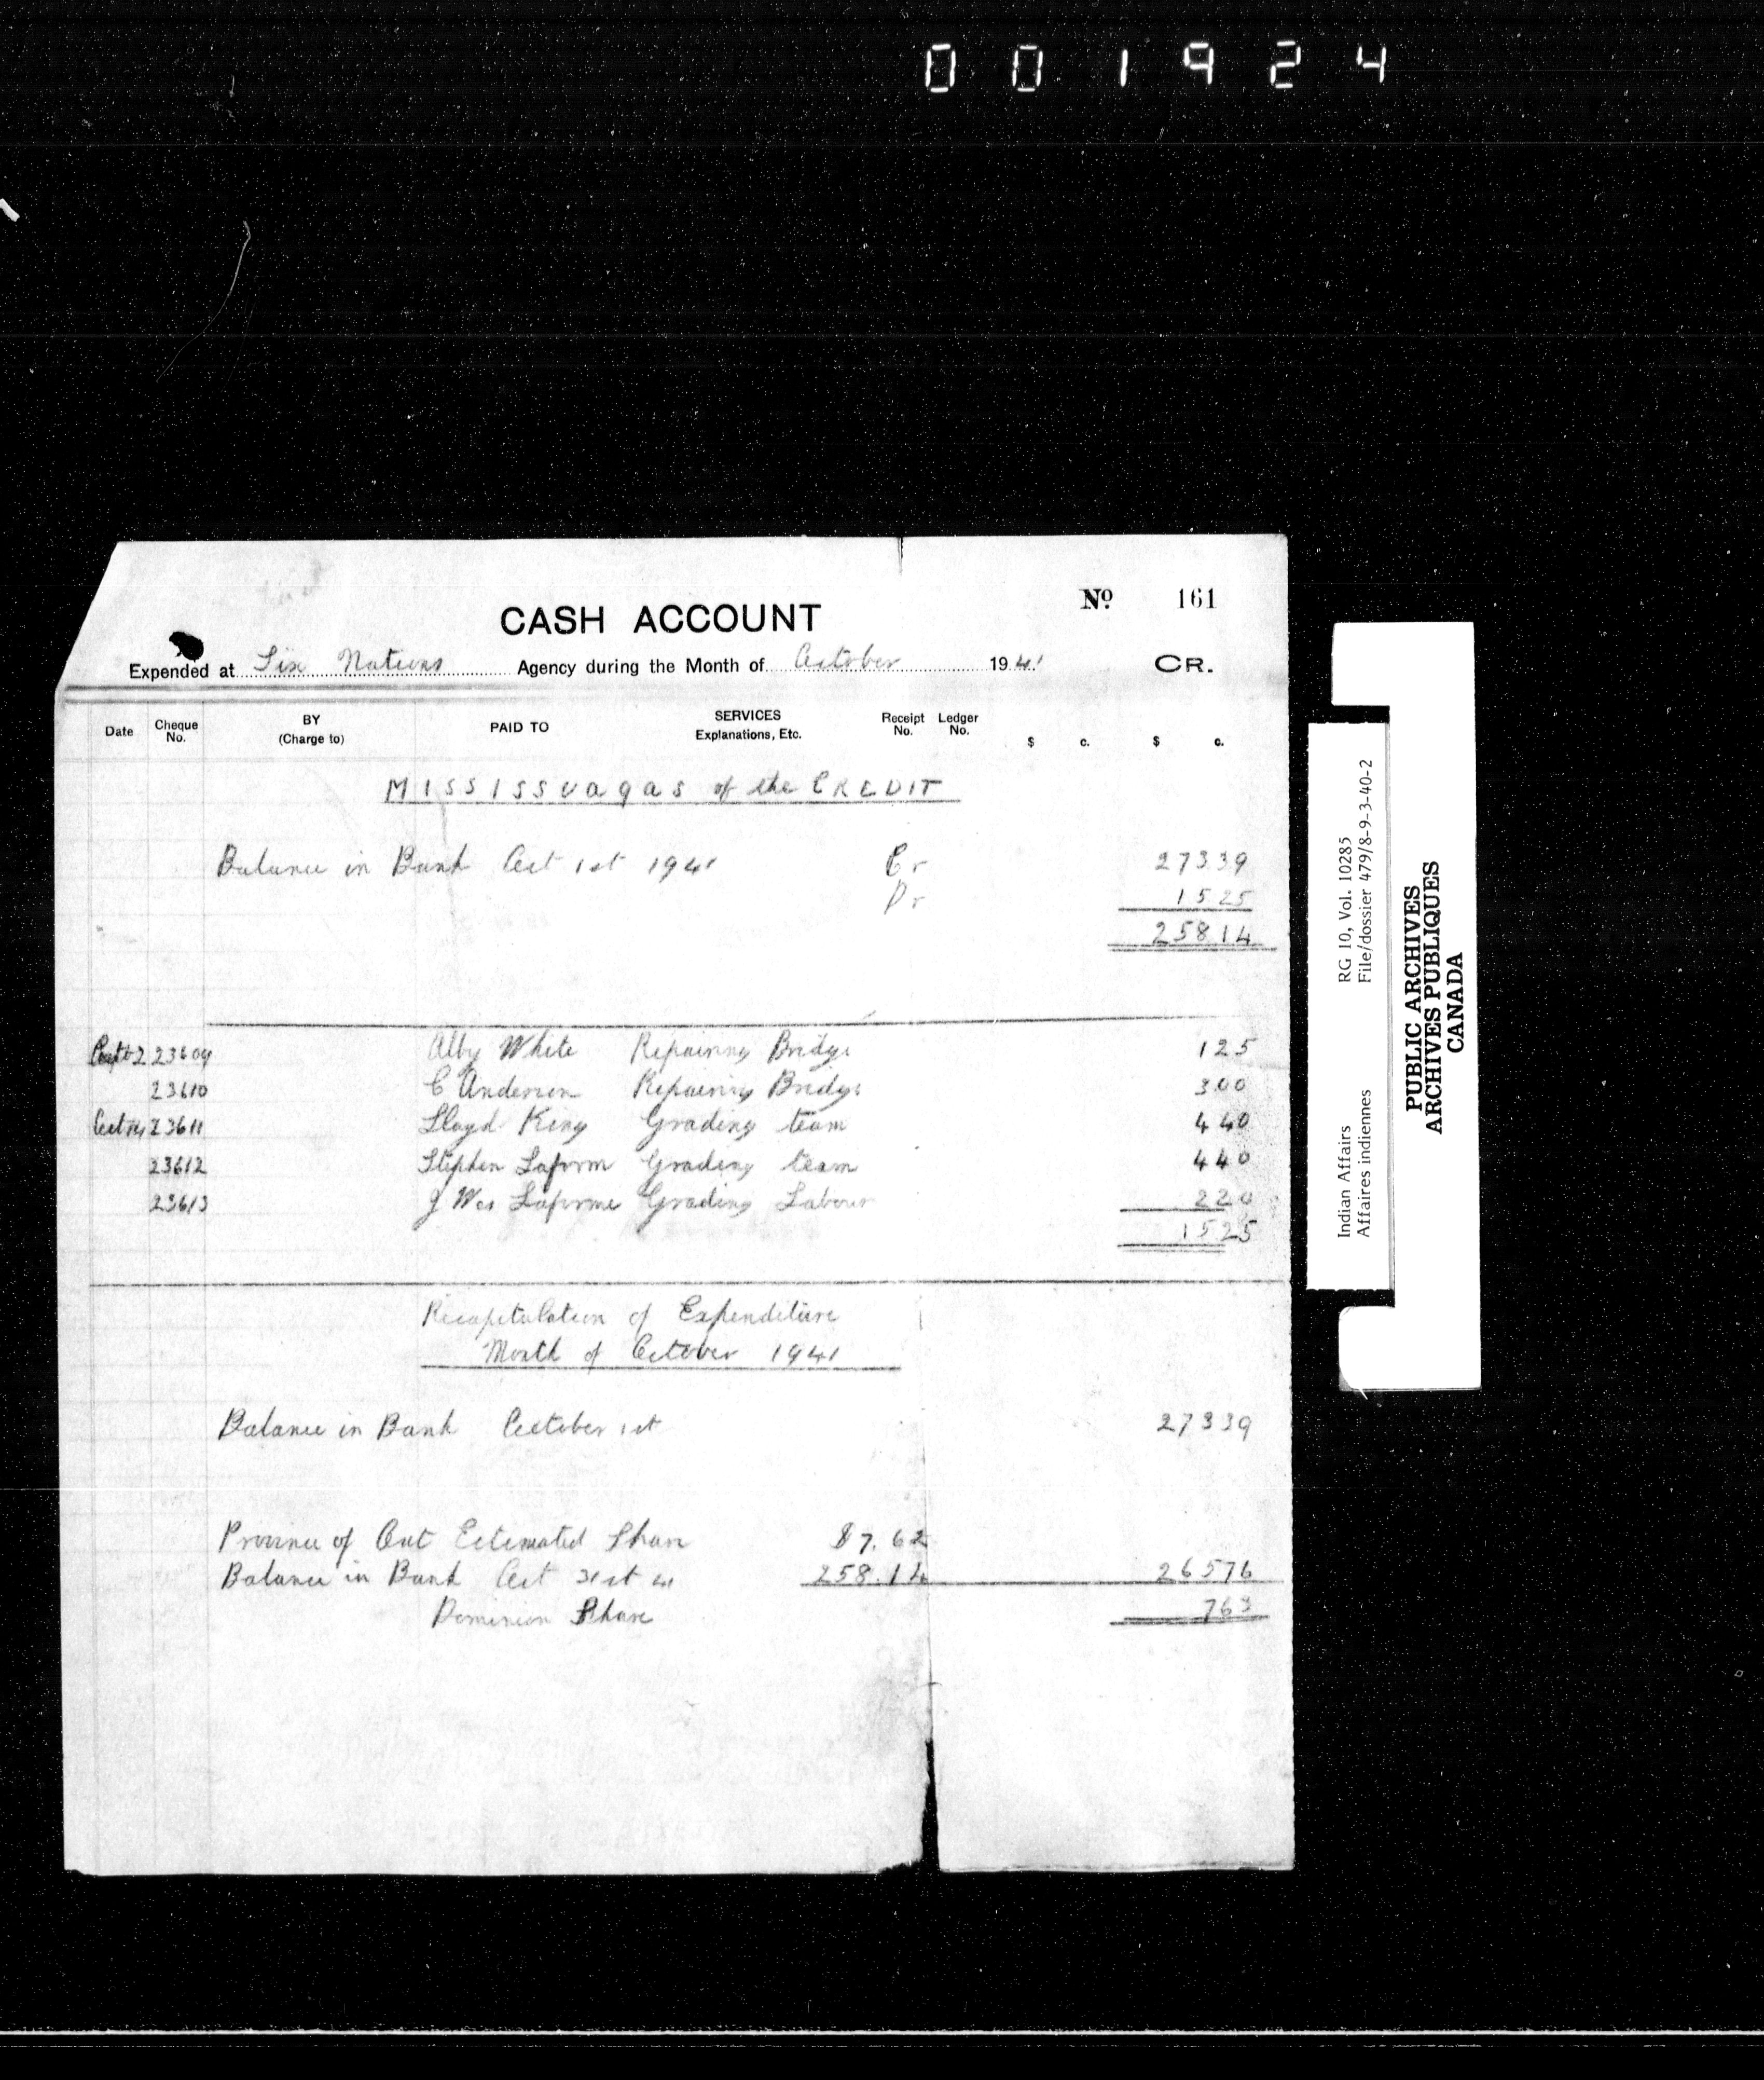 001924
CASH ACCOUNT
No. 161
Expended at Six Nations Agency during the Month of October 1941 CR.
Date Cheque No. BY (Charge to) PAID TO SERVICES Explanations, Etc. Receipt No. Ledger No. $ c. $ c.
MISSISSUAGAS of the CREDIT
Balance in Bank Oct 1st 1941 Cr 273 39
Dr 15 25
258 14
23609 Alby White Repairing Bridge 1 25
23610 C Anderson Repairing Bridge 3 00
Oct 23611 Lloyd King Grading team 4 40
23612 Stephen Laform Grading team 4 40
23613 J Wes Laforme Grading Labour 2 20
15 25
Recapitulation of Expenditure
Month of October 1941
Balance in Bank October 1st 273 39
Province of Ont Estimated Share $7.62
Balance in Bank Oct 31st 41 258.14 265 76
Dominion Share 7 63
Indian Affairs RG 10, Vol. 10285
Affaires indiennes File/dossier 479/8-9-3-40-2
PUBLIC ARCHIVES
ARCHIVES PUBLIQUES
CANADA